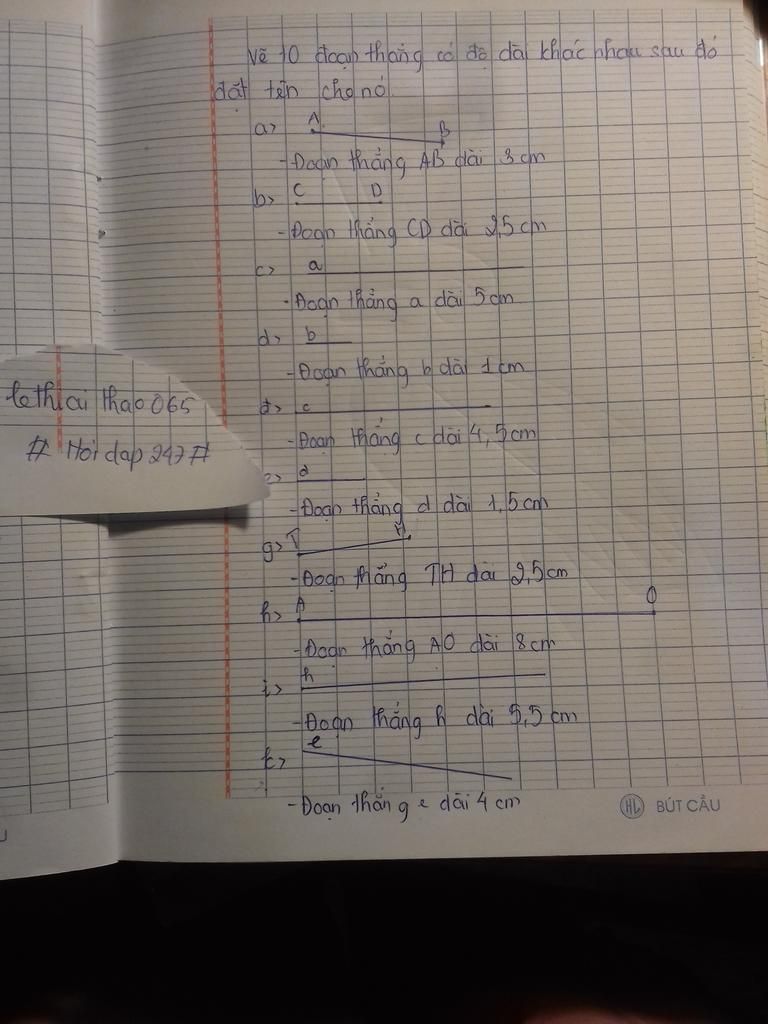 Vẽ 10 đoạn thẳng có độ dài khác nhau sau đó
đặt tên cho nó.
a> A B
- Đoạn thẳng AB dài 3 cm
b> C D
- Đoạn thẳng CD dài 2,5 cm
c> a
- Đoạn thẳng a dài 5 cm
d> b
- Đoạn thẳng b dài 1 cm
đ> c
- Đoạn thẳng c dài 4,5 cm
e> d
- Đoạn thẳng d dài 1,5 cm
g> T H
- Đoạn thẳng TH dài 2,5 cm
h> A O
- Đoạn thẳng AO dài 8 cm
i> h
- Đoạn thẳng h dài 5,5 cm
k> e
- Đoạn thẳng e dài 4 cm
HL BÚT CẦU
lethiai thao 065
# Hoi dap 247 #